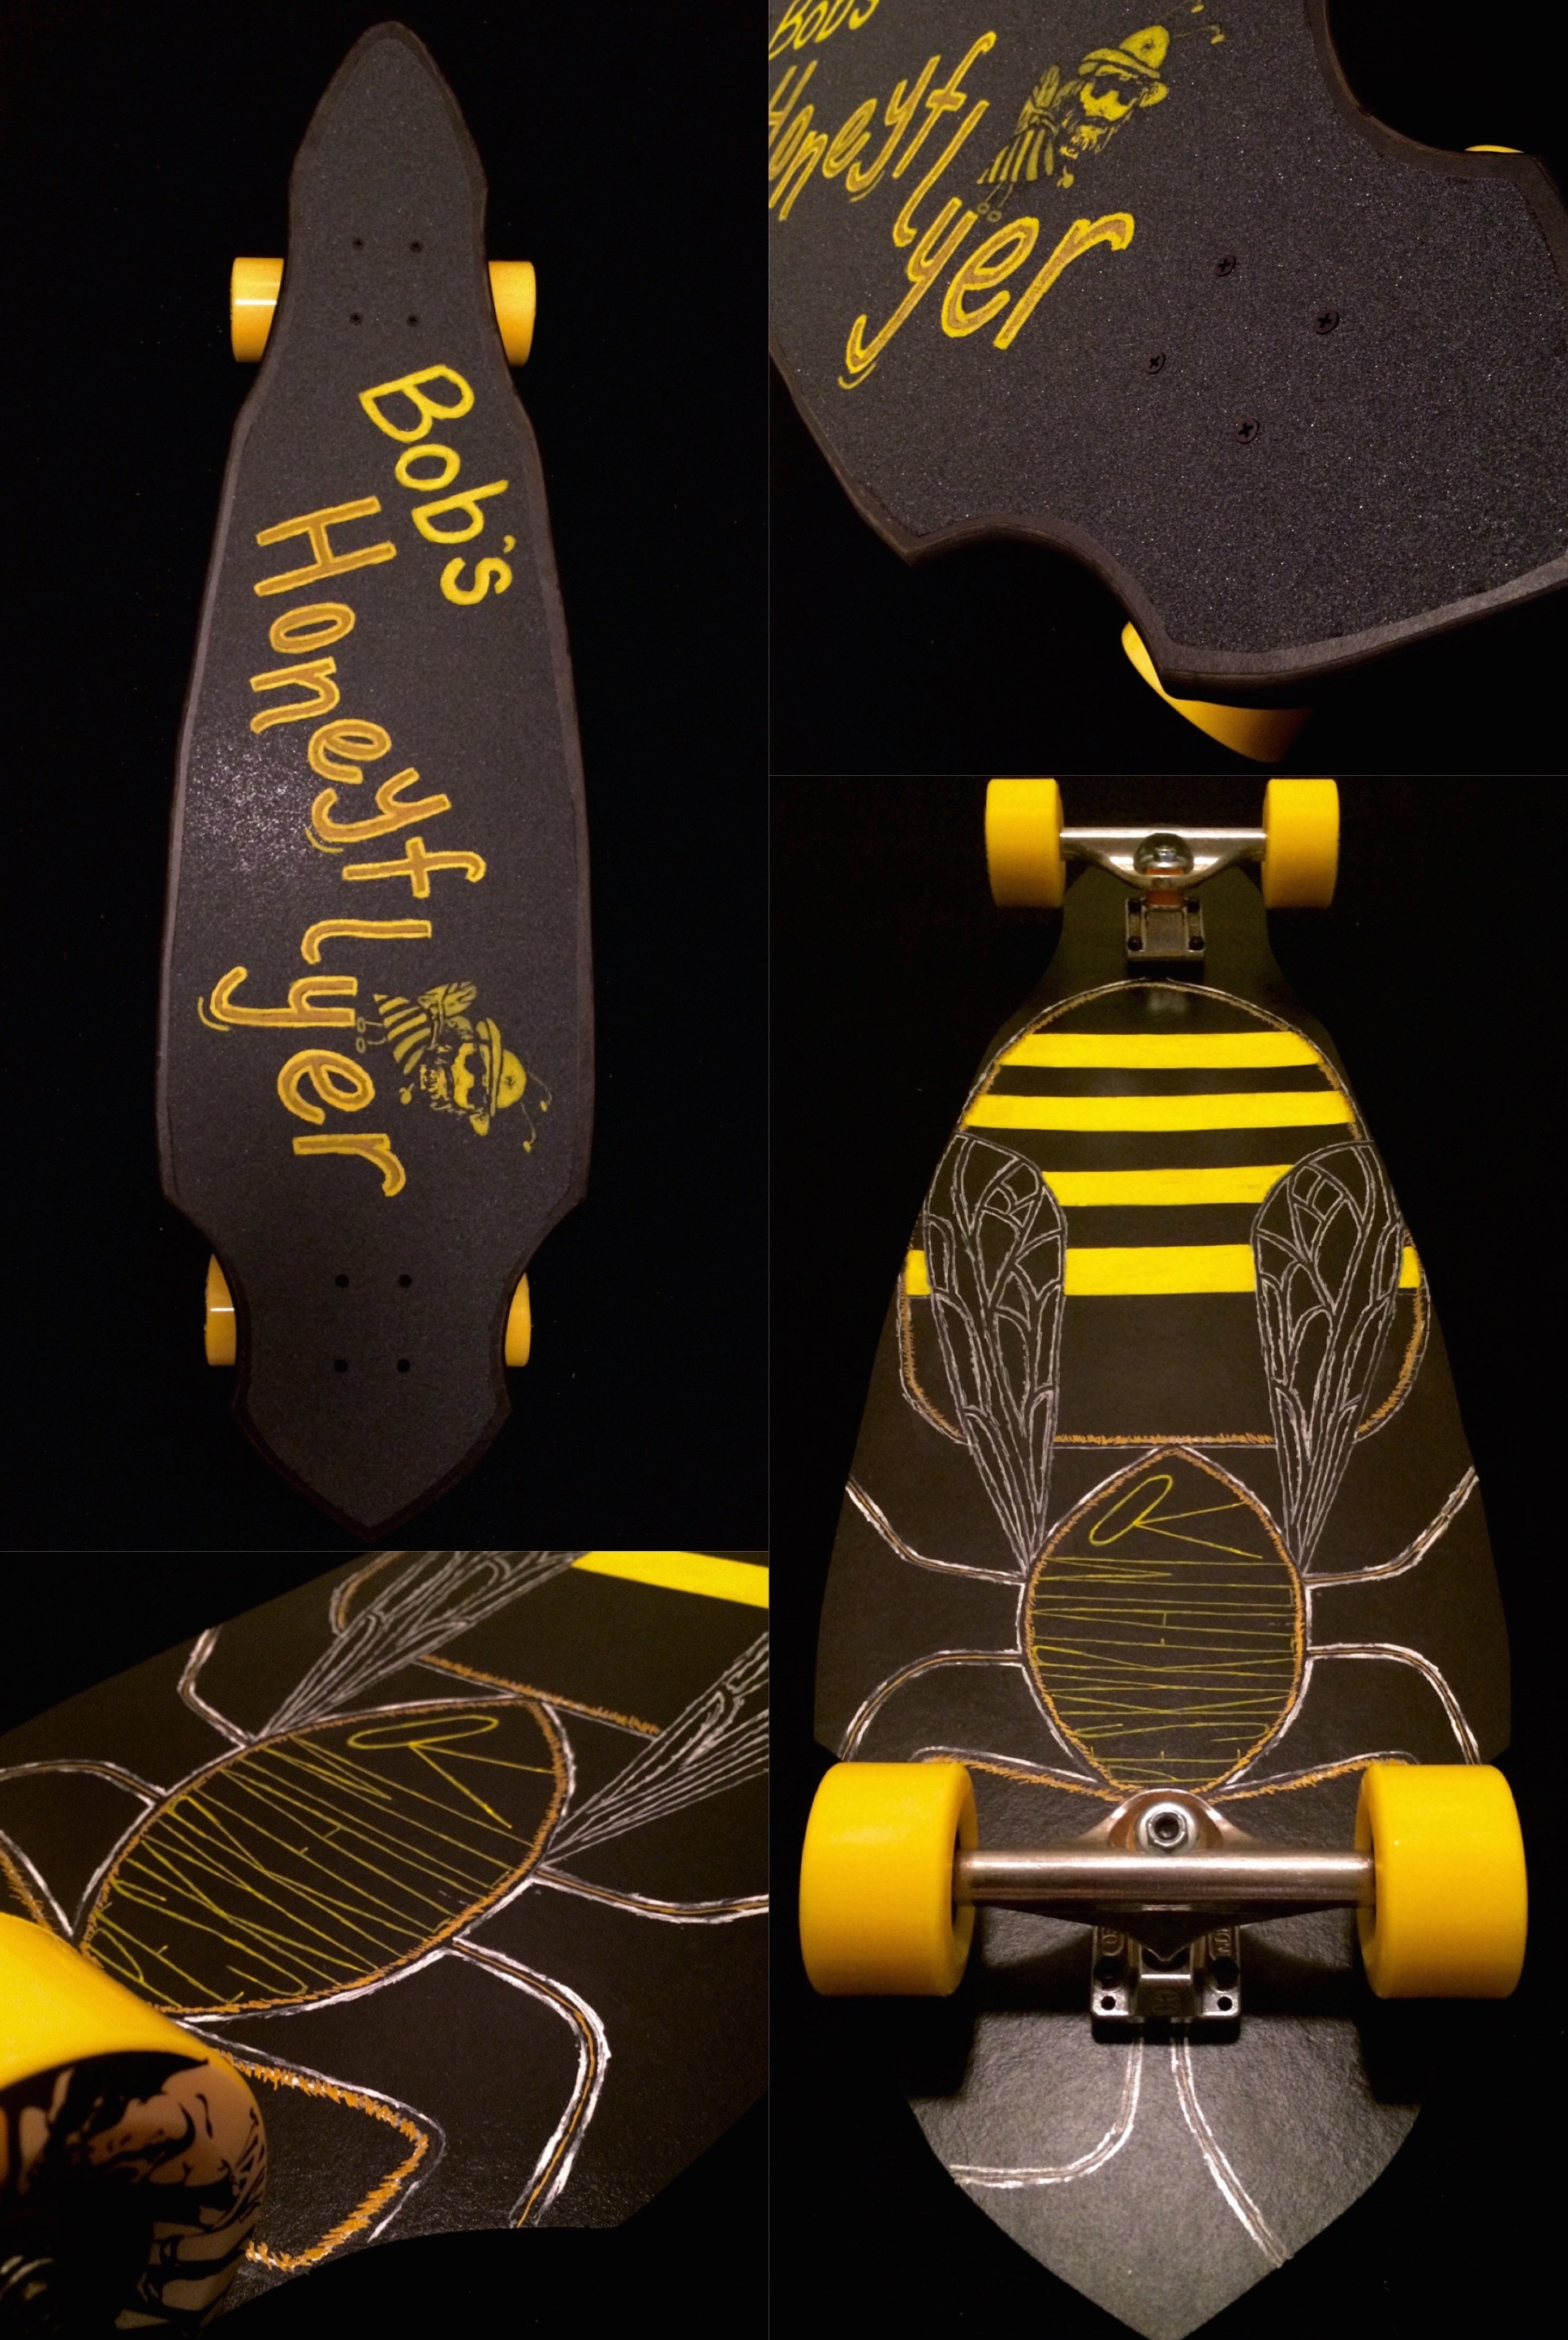 Bob's
Honeyflyer
Bob's
Honeyfl
yer